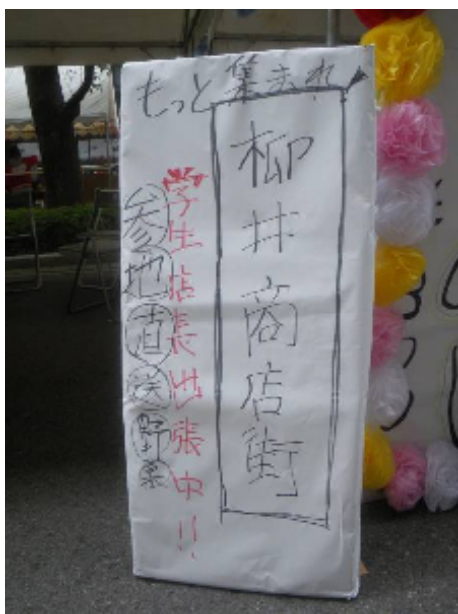 もっと集まれ!
柳井商店街
学生店長出張中!!
参地直送野菜